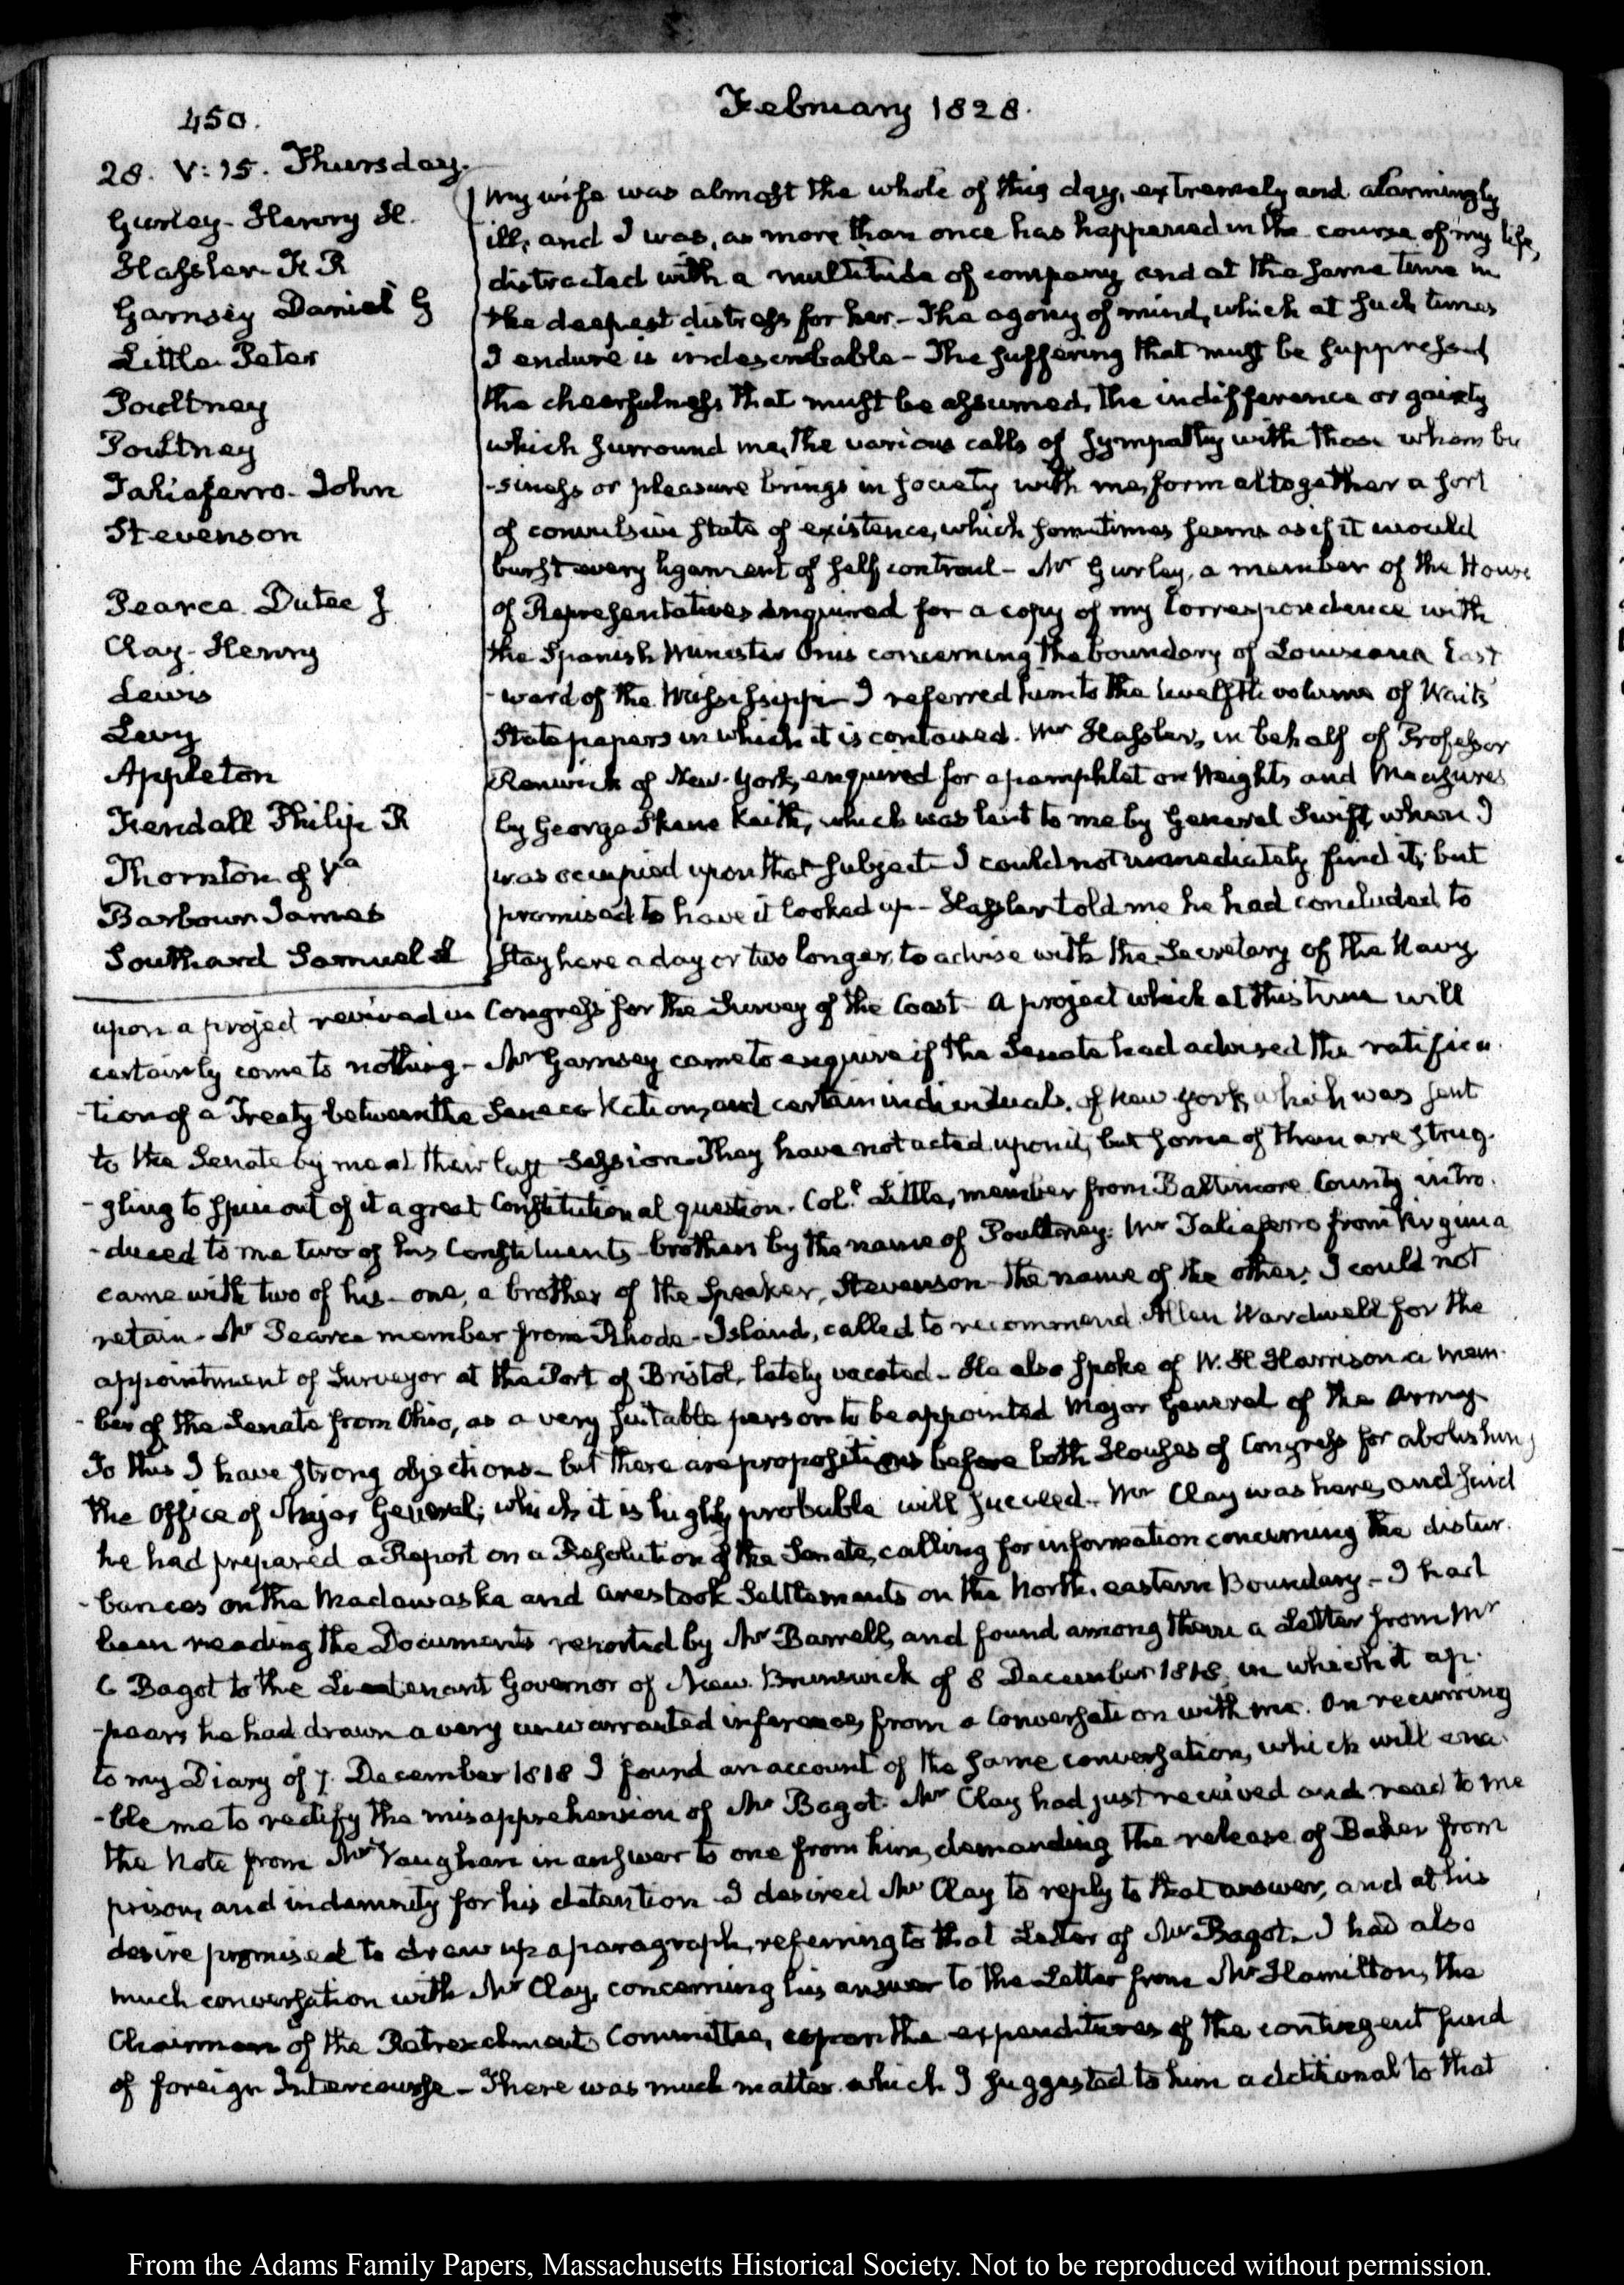 450.
February 1828.
28. V:15. Thursday.
Gurley- Henry H.
Hassler- F R
Garnsey Daniel G
Little- Peter
Poultney
Poultney
Taliaferro- John
Stevenson
Pearce Dutee J
Clay- Henry
Lewis
Levy
Appleton
Fendall Philip R
Thornton of Va
Barbour James
Southard Samuel L
My wife was almost the whole of this day, extremely and alarmingly
ill, and I was, as more than once has happened in the course of my life,
distracted with a multitude of company and at the same time in
the deepest distress for her- The agony of mind, which at such times
I endure is indescribable- The suffering that must be suppressed
the cheerfulness that must be assumed, the indifference or gaiety
which surround me, the various calls of sympathy with those whom bu
-siness or pleasure brings in society with me, form altogether a sort
of convulsive state of existence, which sometimes seems as if it would
burst every ligament of self controul- Mr Gurley, a member of the House
of Representatives enquired for a copy of my correspondence with
the Spanish Minister Onis concerning the boundary of Louisiana East
-ward of the Mississippi- I referred him to the twelfth volume of Waits
State papers in which it is contained. Mr Hassler, in behalf of Professor
Renwick of New-York, enquired for a pamphlet on Weights and Measures
by George Skene Keith, which was lent to me by General Swift, when I
was occupied upon that subject- I could not immediately find it; but
promised to have it looked up- Hassler told me he had concluded to
stay here a day or two longer, to advise with the Secretary of the Navy
upon a project revived in Congress for the Survey of the Coast- a project which at this time will
certainly come to nothing- Mr Garnsey came to enquire if the Senate had advised the ratifica
-tion of a Treaty between the Seneca Nation, and certain individuals, of New York, which was sent
to the Senate by me at their last Session. They have not acted upon it, but some of them are strug-
-gling to spin out of it a great Constitutional question. Coll. Little, member from Baltimore County intro-
-duced to me two of his Constituents- brothers by the name of Poultney. Mr Taliaferro from Virginia
came with two of his- one, a brother of the Speaker, Stevenson- the name of the other, I could not
retain- Mr Pearce member from Rhode-Island, called to recommend Allen Wardwell for the
appointment of Surveyor at the Port of Bristol, lately vacated- He also spoke of W. H. Harrison a mem-
-ber of the Senate from Ohio, as a very suitable person to be appointed Major General of the Army-
To this I have strong objections- but there are propositions before both Houses of Congress for abolishing
the Office of Major General; which it is highly probable will succeed- Mr Clay was here, and said
he had prepared a Report on a Resolution of the Senate, calling for information concerning the distur-
-bances on the Madawaska and Arestook Settlements on the North-eastern Boundary- I had
been reading the Documents reported by Mr Barrell, and found among them a Letter from Mr
C Bagot to the Lieutenant Governor of New-Brunswick of 8 December 1818, in which it ap-
-pears he had drawn a very unwarranted inference, from a Conversation with me. On recurring
to my Diary of 7. December 1818 I found an account of the same conversation, which will ena-
-ble me to rectify the misapprehension of Mr Bagot. Mr Clay had just received and read to me
the Note from Mr Vaughan in answer to one from him, demanding the release of Baker from
prison, and indemnity for his detention- I desired Mr Clay to reply to that answer, and at his
desire promised to draw up a paragraph, referring to that Letter of Mr Bagot. I had also
much conversation with Mr Clay, concerning his answer to the Letter from Mr Hamilton, the
Chairman of the Retrenchment Committee, upon the expenditures of the contingent fund
of foreign Intercourse- There was much matter which I suggested to him additional to that
From the Adams Family Papers, Massachusetts Historical Society. Not to be reproduced without permission.